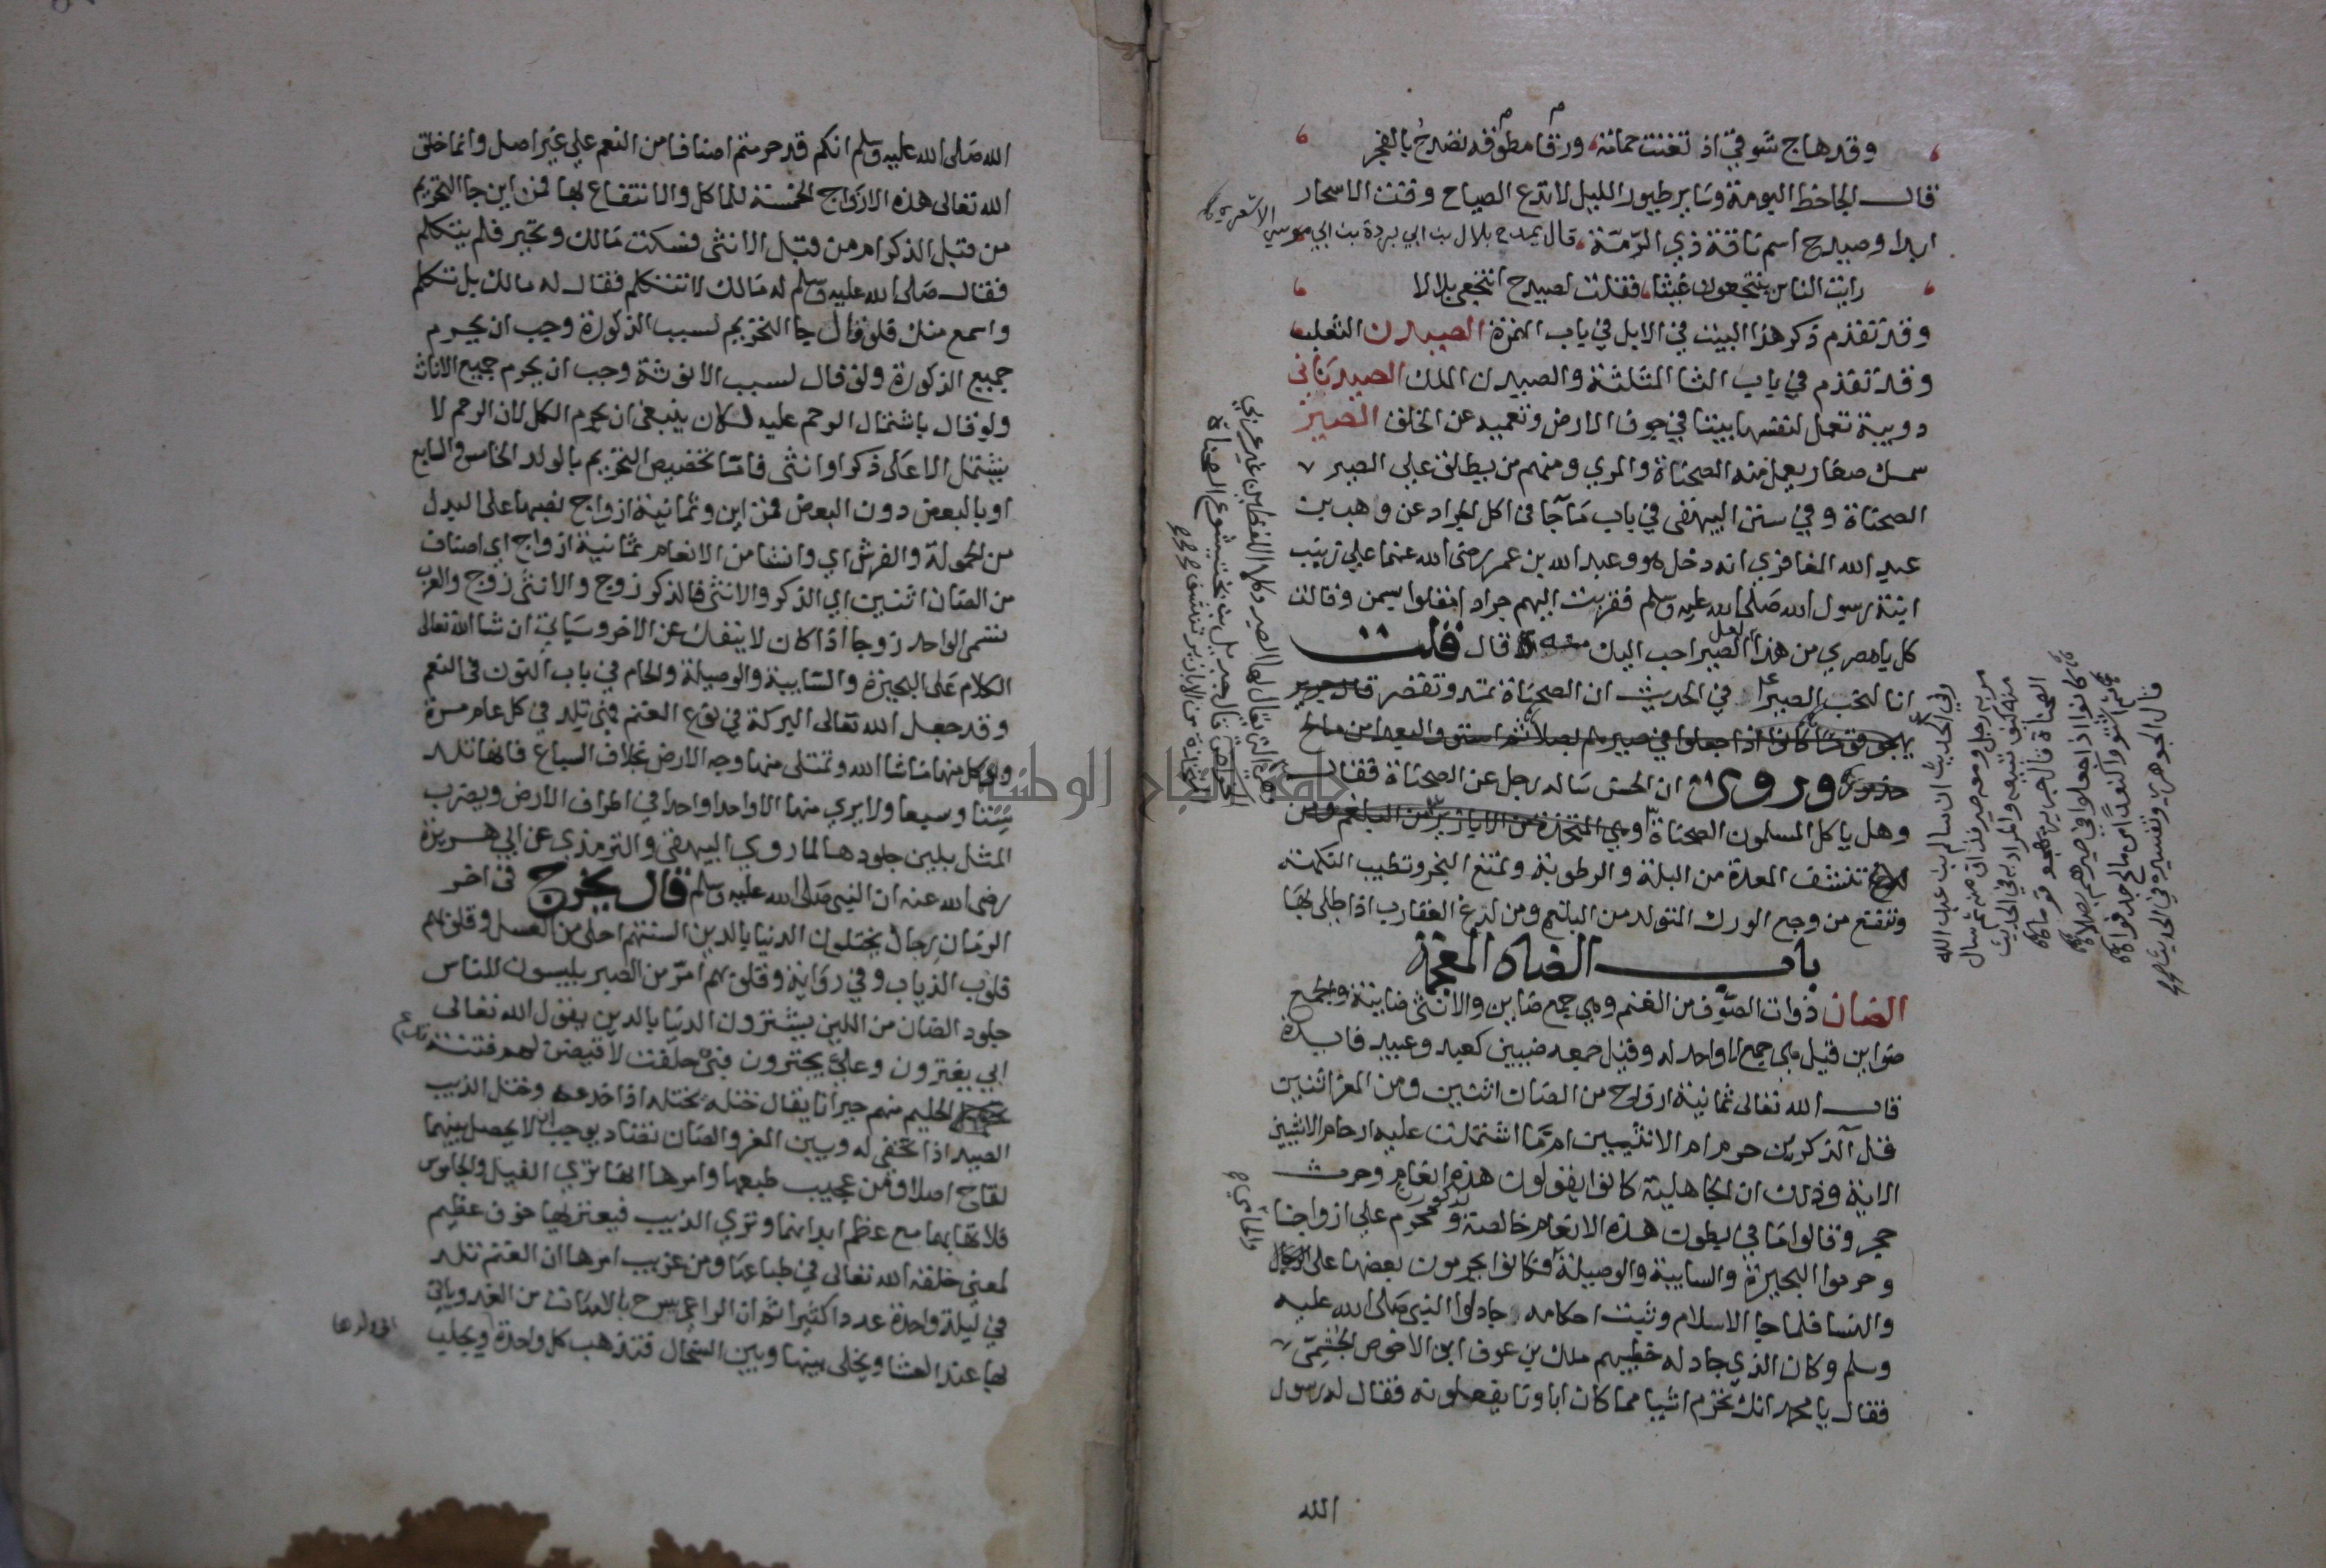 وقد هاج شوقي اذ تغنت حمامة ورقا مطوقة تصدح بالفجر
قال الجاحظ البومة وساير طيور الليل لا تدع الصياح وقت الاسحار
ابدا وصيدح اسم ناقة ذي الرمة قال يمدح بلال بن ابي بردة بن ابي موسي الاشعري
رايت الناس ينتجعون غيثا فقلت لصيدح انتجعي بلالا
وقد تقدم ذكر هذا البيت في الابل في باب الهمزة الصيدن الثعلب
وقد تقدم في باب الثا المثلثة والصيدن الملك الصيدناني
دويبة تعمل لنفسها بيتا في جوف الارض وتعميه عن الخلق الصير
سمك صغار يعمل منه الصحناة والمري ومنهم من يطلق علي الصير
الصحناة وفي سنن البيهقي في باب ما جا في اكل الجراد عن وهب بن
عبد الله المغافري انه دخل هو وعبد الله بن عمر رضى الله عنهما علي زينب
ابنة رسول الله صلى الله عليه وسلم فقربت اليهم جراد امقلوا بسمن وقالت
كل يا مصري من هذا لعل الصير احب اليك منه قال قلت
انا لنحب الصير في الحديث ان الصحناة
وروى ان الحسن ساله رجل عن الصحناة فقال
وهل ياكل المسلمون الصحناة
تنشف المعدة من البلة والرطوبة وتمنع البخر وتطيب النكهة
وتنفع من وجع الورك المتولد من البلغم ومن لدغ العقارب اذا طلي بها
باب الضاد المعجمة
الضان ذوات الصوف من الغنم وهي جمع ضاين والانثى ضاينة والجمع
ضواين قيل هي جمع لا واحد له وقيل جمعه ضيين كعبد وعبيد فايدة
قال الله تعالى ثمانية ازواج من الضان اثنين ومن المعز اثنين
قل آلذكرين حرم ام الانثيين امّا اشتملت عليه ارحام الانثيين
الاية وذلك ان الجاهلية كانوا يقولون هذه انعام وحرث
حجر وقالوا ما في بطون هذه الانعام خالصة لذكورنا ومحرم علي ازواجنا
وحرموا البحيرة والسايبة والوصيلة والحامي فكانوا يحرمون بعضها على الرجال
والنسا فلما جا الاسلام وثبتت احكامه جادلوا النبي صلى الله عليه
وسلم وكان الذي جادله خطيبهم ملك بن عوف ابو الاحوص الجشمي
فقال يا محمد انك تحرم اشيا مما كان اباونا يفعلونه فقال له رسول
الله
وفي الحديث ان سالم بن عبد الله
مر به رجل ومعه صير فذاق منه ثم سال
منه كيف تبيعه والمراد به في الحديث
الصحناة قال جرير يهجو قوما
كانوا اذا جعلوا في صيرهم بصلا
ثم اشتووا كنعدا من مالح جدفوا
قال الجوهري وتفسيره في الحديث
الله صلى الله عليه وسلم انكم قد حرمتم اصنافا من النعم علي غير اصل وانما خلق
الله تعالى هذه الازواج الخمسة للاكل والانتفاع بها فمن اين جا التحريم
من قبل الذكر ام من قبل الانثى فسكت مالك وتحير فلم يتكلم
فقال صلى الله عليه وسلم له مالك لا تتكلم فقال له مالك بل تكلم
واسمع منك فلو قال جا التحريم لسبب الذكورة وجب ان يحرم
جميع الذكورة ولو قال لسبب الانوثة وجب ان يحرم جميع الاناث
ولو قال باشتمال الرحم عليه لكان ينبغي ان يحرم الكل لان الرحم لا
يشتمل الا على ذكر او انثى فامّا تخصيص التحريم بالولد الخامس والسابع
او بالبعض دون البعض فمن اين وثمانية ازواج نصبها على البدل
من الحمولة والفرش اي وانشا من الانعام ثمانية ازواج اي اصناف
من الضان اثنين اي الذكر والانثى فالذكر زوج والانثى زوج والعرب
تسمى الواحد زوجا اذا كان لا ينفك عن الاخر وسياتي ان شا الله تعالى
الكلام على البحيرة والسايبة والوصيلة والحام في باب النون في النعم
وقد جعل الله تعالى البركة في نوع الغنم فهي تلد في كل عام مرة
ويوكل منها ما شا الله وتمتلى منها وجه الارض بخلاف السباع فانها تلد
ستا وسبعا ولا يري منها الا واحدا واحدا في اطراف الارض ويضرب
المثل بلين جلودها لما روي البيهقي والترمذي عن ابي هريرة
رضى الله عنه ان النبي صلى الله عليه وسلم قال يخرج في اخر
الزمان رجال يختلون الدنيا بالدين السنتهم احلى من العسل وقلوبهم
قلوب الذياب وفي رواية وقلوبهم امرّ من الصبر يلبسون للناس
جلود الضان من اللين يشترون الدنيا بالدين يقول الله تعالى
ابي يغترون وعليّ يجترون فبي حلفت لاقيضن لهم فتنة
الحليم منهم حيرانا يقال ختله يختله اذا خدعه وختل الذيب
الصيد اذا تخفى له وبين المعز والضان تضاد يوجب ان لا يحصل بينهما
لقاح اصلا ومن عجيب طبعها وامرها انها تري الفيل والجاموس
فلا تهابهما مع عظم ابدانهما وتري الذيب فيعتريها خوف عظيم
لمعني خلقه الله تعالى في طباعها ومن غريب امرها ان الغنم تلد
في ليلة واحدة عددا كثيرا ثم ان الراعي يسرح بالامهات من الغد وياتي
بها عند العشا ويخلى بينها وبين السخال فتذهب كل واحدة
الى ولدها
جامعة النجاح الوطنية